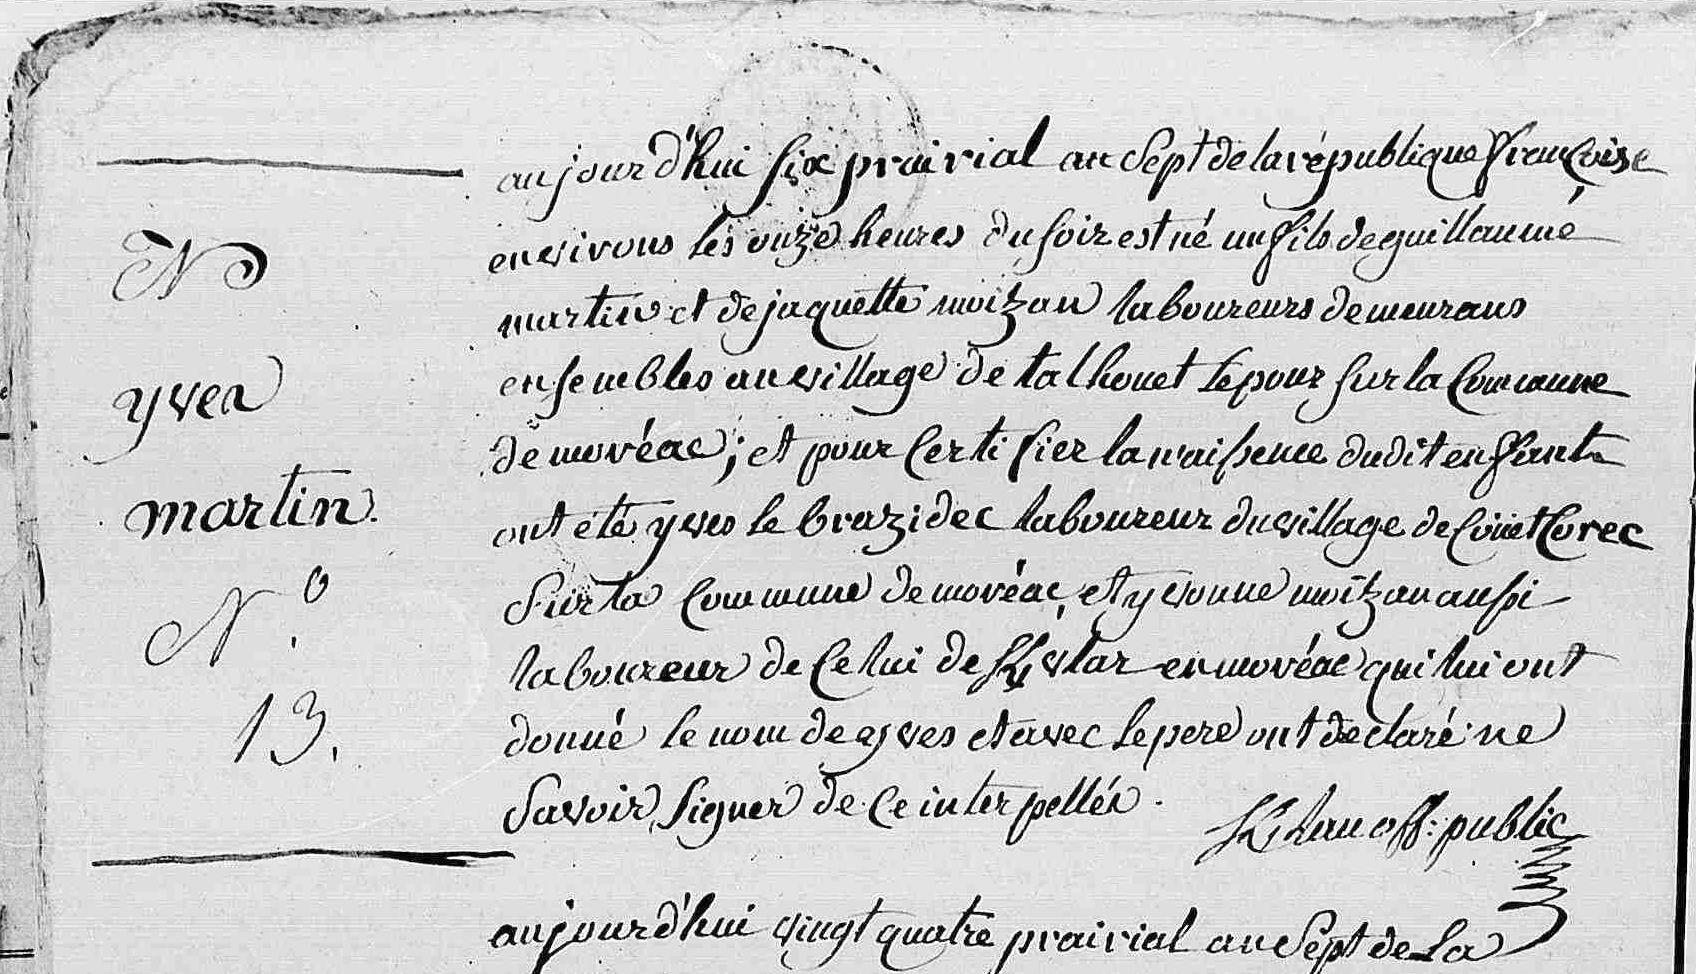 N
yves
martin.
N.º
13.
aujourd'hui six prairial an sept de la république françoise
environs les onze heures du soir est né un fils de guillaume
martin et de jaquette moizan laboureurs demeurans
ensembles au village de talhouet lepour sur la Commune
de moréac; et pour Certifier la naissence dudit enffant
ont été yves le brazidec laboureur du village de Coüet Corec
Sur la Commune de moréac, et yvonne moizan aussi
laboureur de Celui de en moréac qui lui ont
donné le nom de yves et avec le pere ont déclaré ne
Savoir Signer de Ce interpellés.
off: public
aujourd'hui vingt quatre prairial an Sept de La